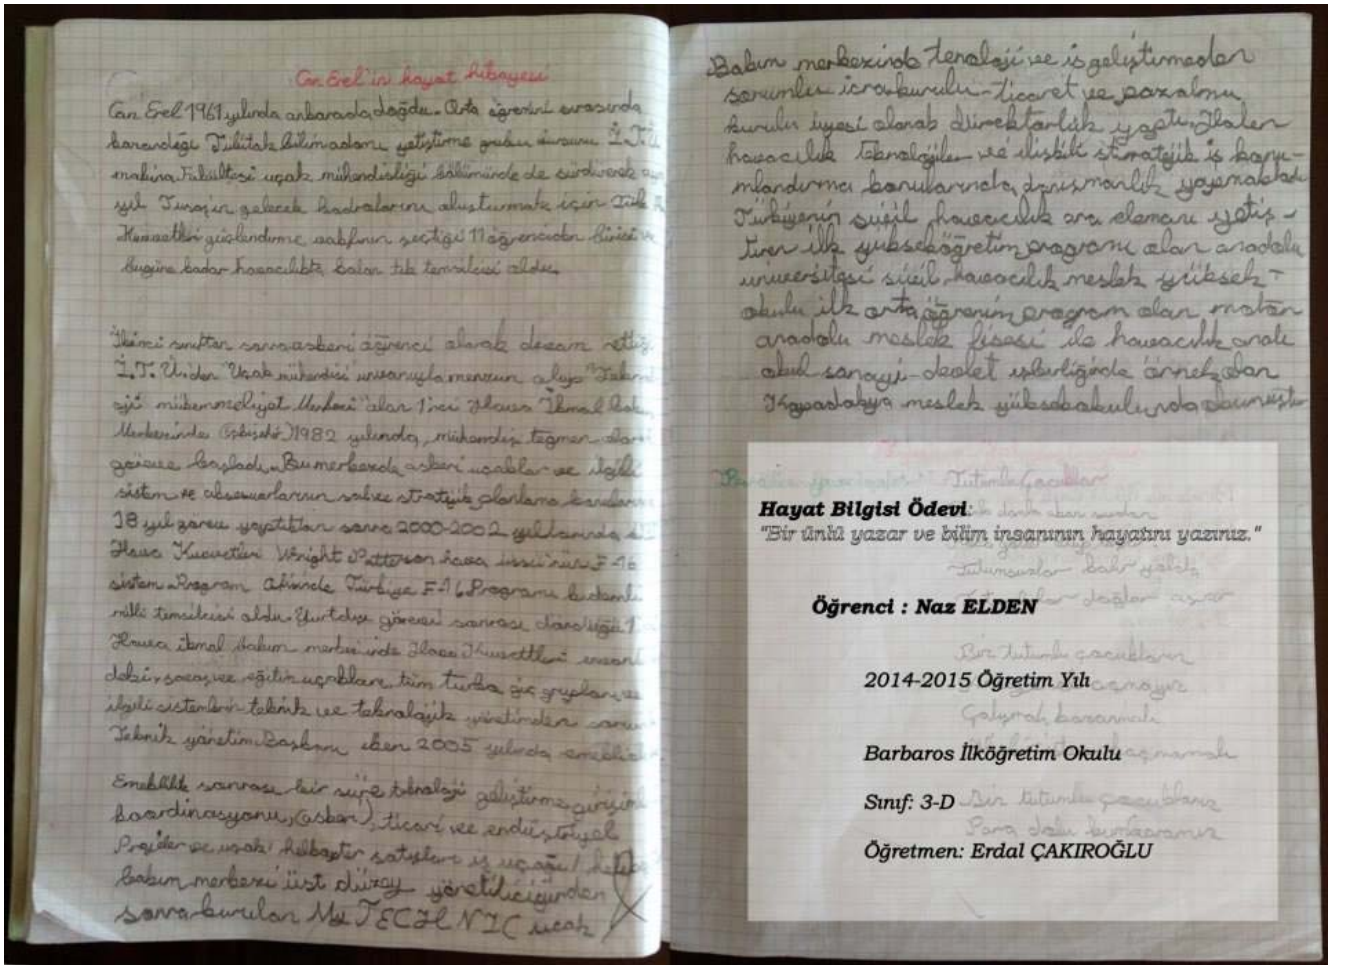 Can Erel'in hayat hikayesi
Can Erel 1961 yılında ankarada doğdu. Orta öğrenini sırasında
kazandığı Tubitak bilimadamı yetiştirme grubu bursunu İ.T.Ü
makina Fakültesi uçak mühendisliği bölümünde de sürdürerek
yıl Tusaşın gelecek kadrolarını oluşturmak için Türk
Kuvvetleri güçlendirme vakfının seçtiği 11 öğrenciden birisi ve
bugüne kadar havacılıkta kalan tek temsilcisi oldu.
İkinci sınıftan sonra askeri öğrenci olarak devam ettiği
İ.T.Ü den "Uçak mühendisi" unvanıyla mezun olup
oji mükemmeliyet Merkezi" olan 1'nci Hava İkmal bak
Merkezinde (Eskişehir) 1982 yılında, mühendis teğmen olarak
göreve başladı. Bu merkezde askeri uçaklar ve ilgili
sistem ve aksesuarlarının stratejik planlama
18 yıl görev yaptıktan sonra 2000-2002 yıllarında
Hava Kuvvetleri Wright Patterson hava üssü'nün F-16
sistem Program Ofisinde Türkiye F-16 Programı kıdemli
milli temsilcisi oldu. Yurtdışı görevi sonrası döndüğü
Hava ikmal bakım merkezinde Hava Kuvvetleri
deki, savaş ve eğitim uçakları, tüm turbo güç grupları ve
ilgili sistemlerin teknik ve teknolojik yönetimden
Teknik yönetim Başkanı iken 2005 yılında
Emeklilik sonrası bir süre teknoloji geliştirme girişimi
koordinasyonu, (askeri), ticari ve endüstriyel
Projeler ve uçak/ helikopter satışları iş uçağı/
bakım merkezi üst düzey yöneticiliğinden
sonra kurulan My TECHNIC uçak
Bakım merkezinde tenoloji ve iş geliştirmeden
sorumlu icra kurulu - ticaret ve pazalma
kurulu üyesi olarak direktörlük yaptı. Halen
havacılık Teknolojiler ve ilişkili stratejik iş konu-
mlandırma konularında, danışmanlık yapmaktadı
Türkiyenin sivil havacılık ara elemanı yetiş-
tiren ilk yükseköğretim programı olan anadolu
üniversitesi sivil havacılık meslek yüksek-
okulu ilk orta öğrenim program olan motor
anadolu meslek lisesi ile havacılık
okul sanayi-devlet işbirliğinde örnek olan
Kapadokya meslek yüksekokulunda
Tutumlu Çocuklar
Hayat Bilgisi Ödevi:
"Bir ünlü yazar ve bilim insanının hayatını yazınız."
Tutumsuzlar
Öğrenci : Naz ELDEN
dağlar aşar
Biz tutumlu çocuklarız
2014-2015 Öğretim Yılı
Çalışmak, kazanmak
Barbaros İlköğretim Okulu
Sınıf: 3-D
Biz tutumlu çocuklarız
Para dolu kumbaramız
Öğretmen: Erdal ÇAKIROĞLU